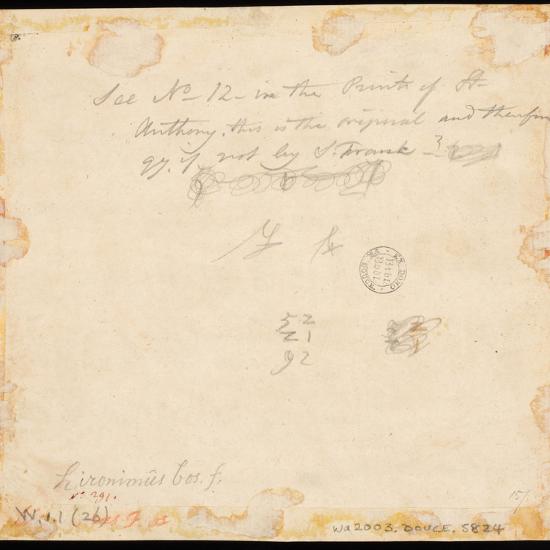 See No 12 - in the Prints of St-
Anthony. this is the original and therefore
qy. if not by S. Frank 3
52
21
92
hironimūs bos. f.
No 291.
W.1.1 (26)
15/
WA2003.DOUCE.5824